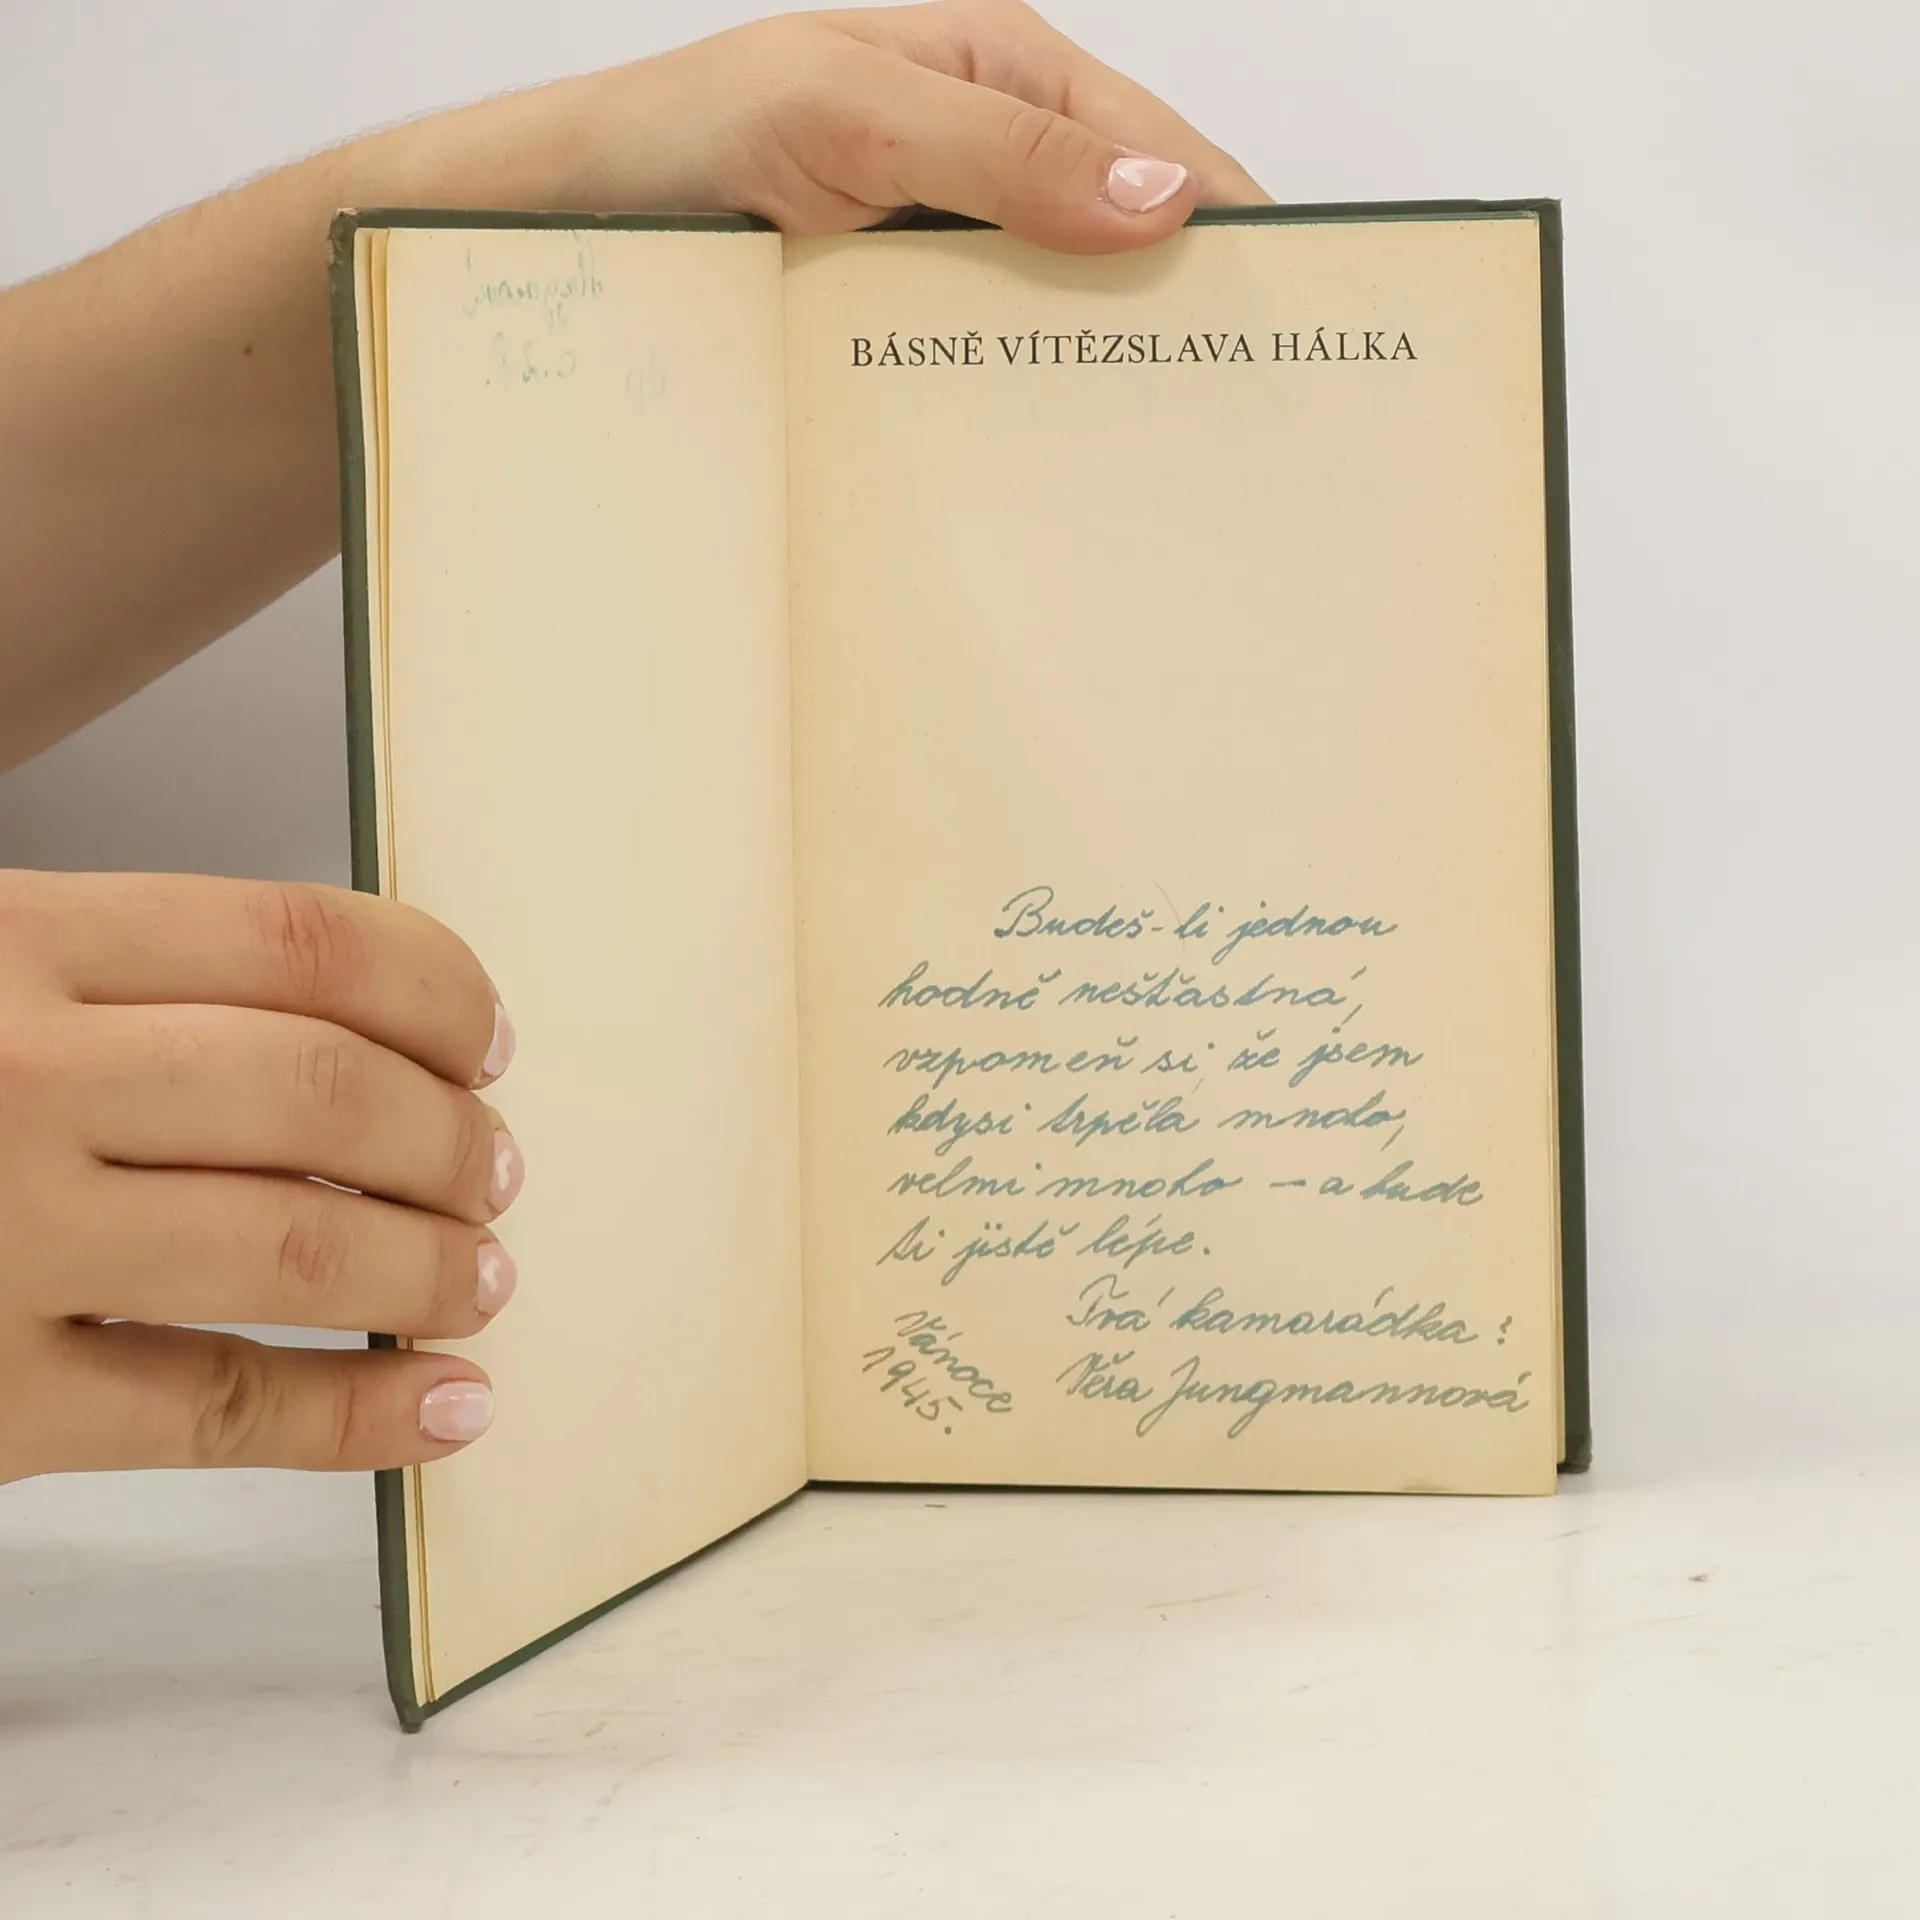 BÁSNĚ VÍTĚZSLAVA HÁLKA
Budeš-li jednou
hodně nešťastná,
vzpomeň si, že jsem
kdysi trpěla mnoho,
velmi mnoho – a bude
ti jistě lépe.
Tvá kamarádka:
Věra Jungmannová
Vánoce
1945.